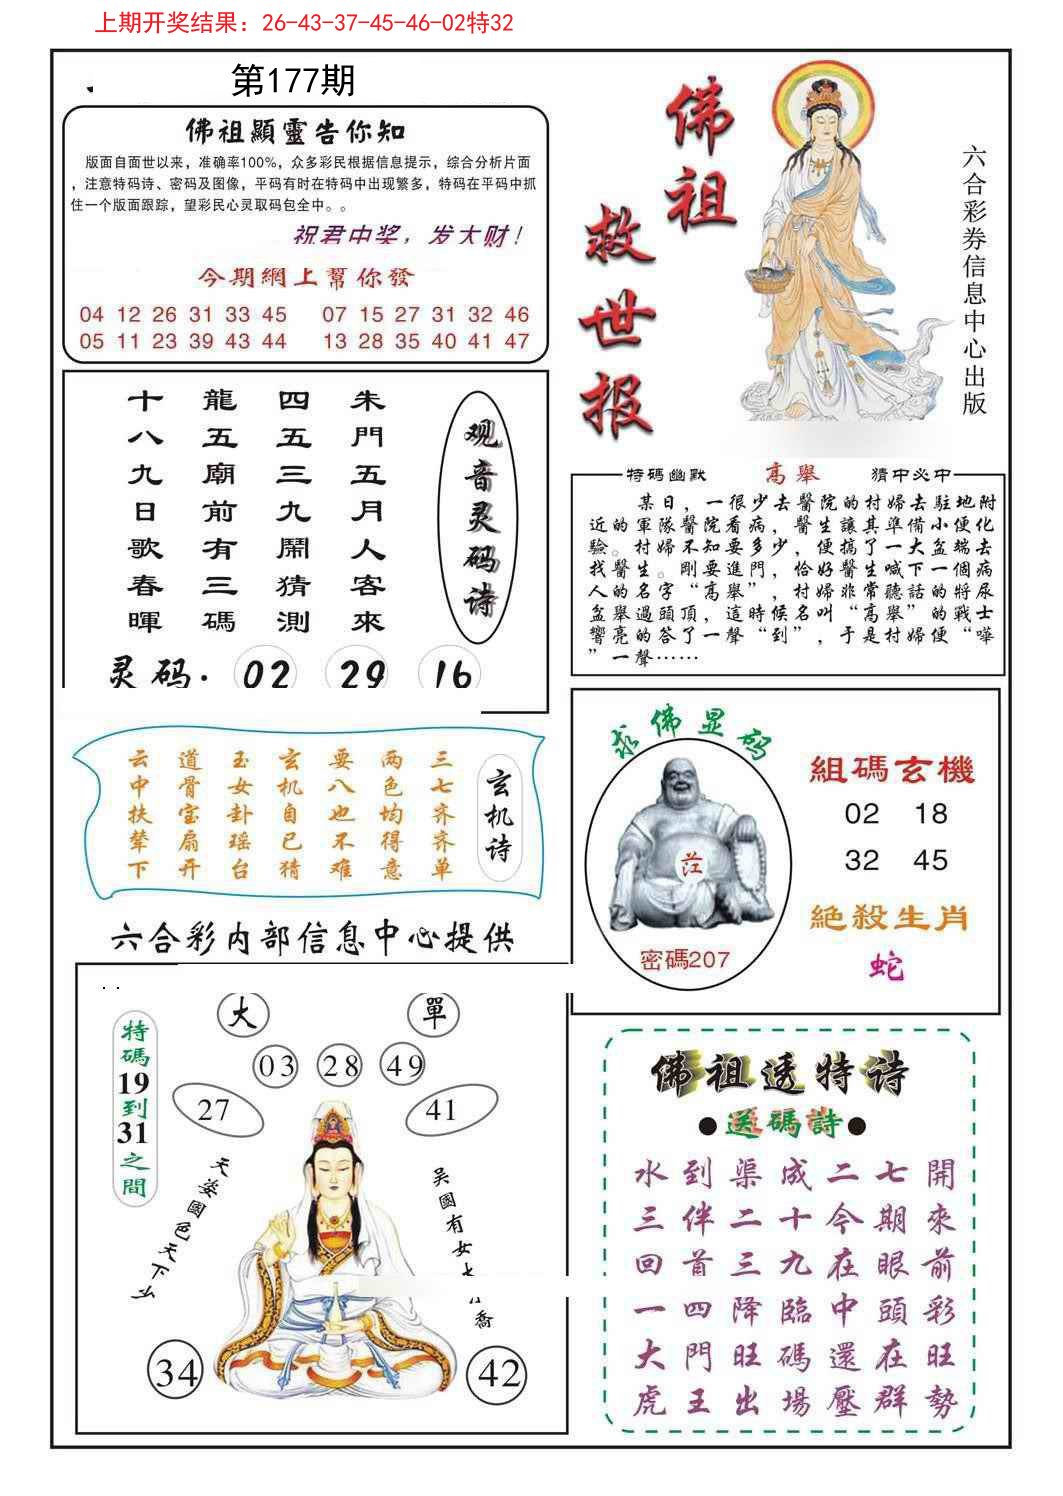 上期开奖结果：26-43-37-45-46-02特32
第177期
佛祖顯靈告你知
版面自面世以来，准确率100%，众多彩民根据信息提示，综合分析片面
，注意特码诗、密码及图像，平码有时在特码中出现繁多，特码在平码中抓
住一个版面跟踪，望彩民心灵取码包全中。。
祝君中奖，发大财！
今期網上幫你發
04 12 26 31 33 45 07 15 27 31 32 46
05 11 23 39 43 44 13 28 35 40 41 47
佛祖
救世报
六合彩券信息中心出版
观音灵码诗
朱門五月人客來
四五三九鬧猜測
龍五廟前有三碼
十八九日歌春暉
灵码. 02 29 16
特碼幽默 高舉 猜中必中
某日，一很少去醫院的村婦去駐地附
近的軍隊醫院看病，醫生讓其準備小便化
驗。村婦不知要多少，便搞了一大盆端去
找醫生。剛要進門，恰好醫生喊下一個病
人的名字“高舉”，村婦非常聽話的將尿
盆舉過頭頂，這時候名叫“高舉”的戰士
響亮的答了一聲“到”，于是村婦便“嘩
”一聲……
玄机诗
三七齐齐单
两色均得意
要八也不难
玄机自已猜
玉女卦瑶台
道骨宝扇开
云中扶辇下
求佛显码
密碼207
組碼玄機
02 18
32 45
絕殺生肖
蛇
六合彩内部信息中心提供
大 單
03 28 49
27 41
特碼19到31之間
天姿國色天下
吴國有女
喬
34 42
佛祖透特诗
●送碼詩●
水到渠成二七開
三伴二十今期來
回首三九在眼前
一四降臨中頭彩
大門旺碼還在旺
虎王出場壓群勢